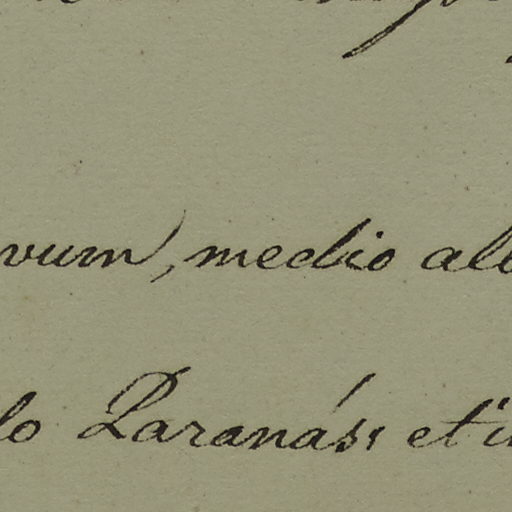 vum, medio alb
lo Paranás, et i